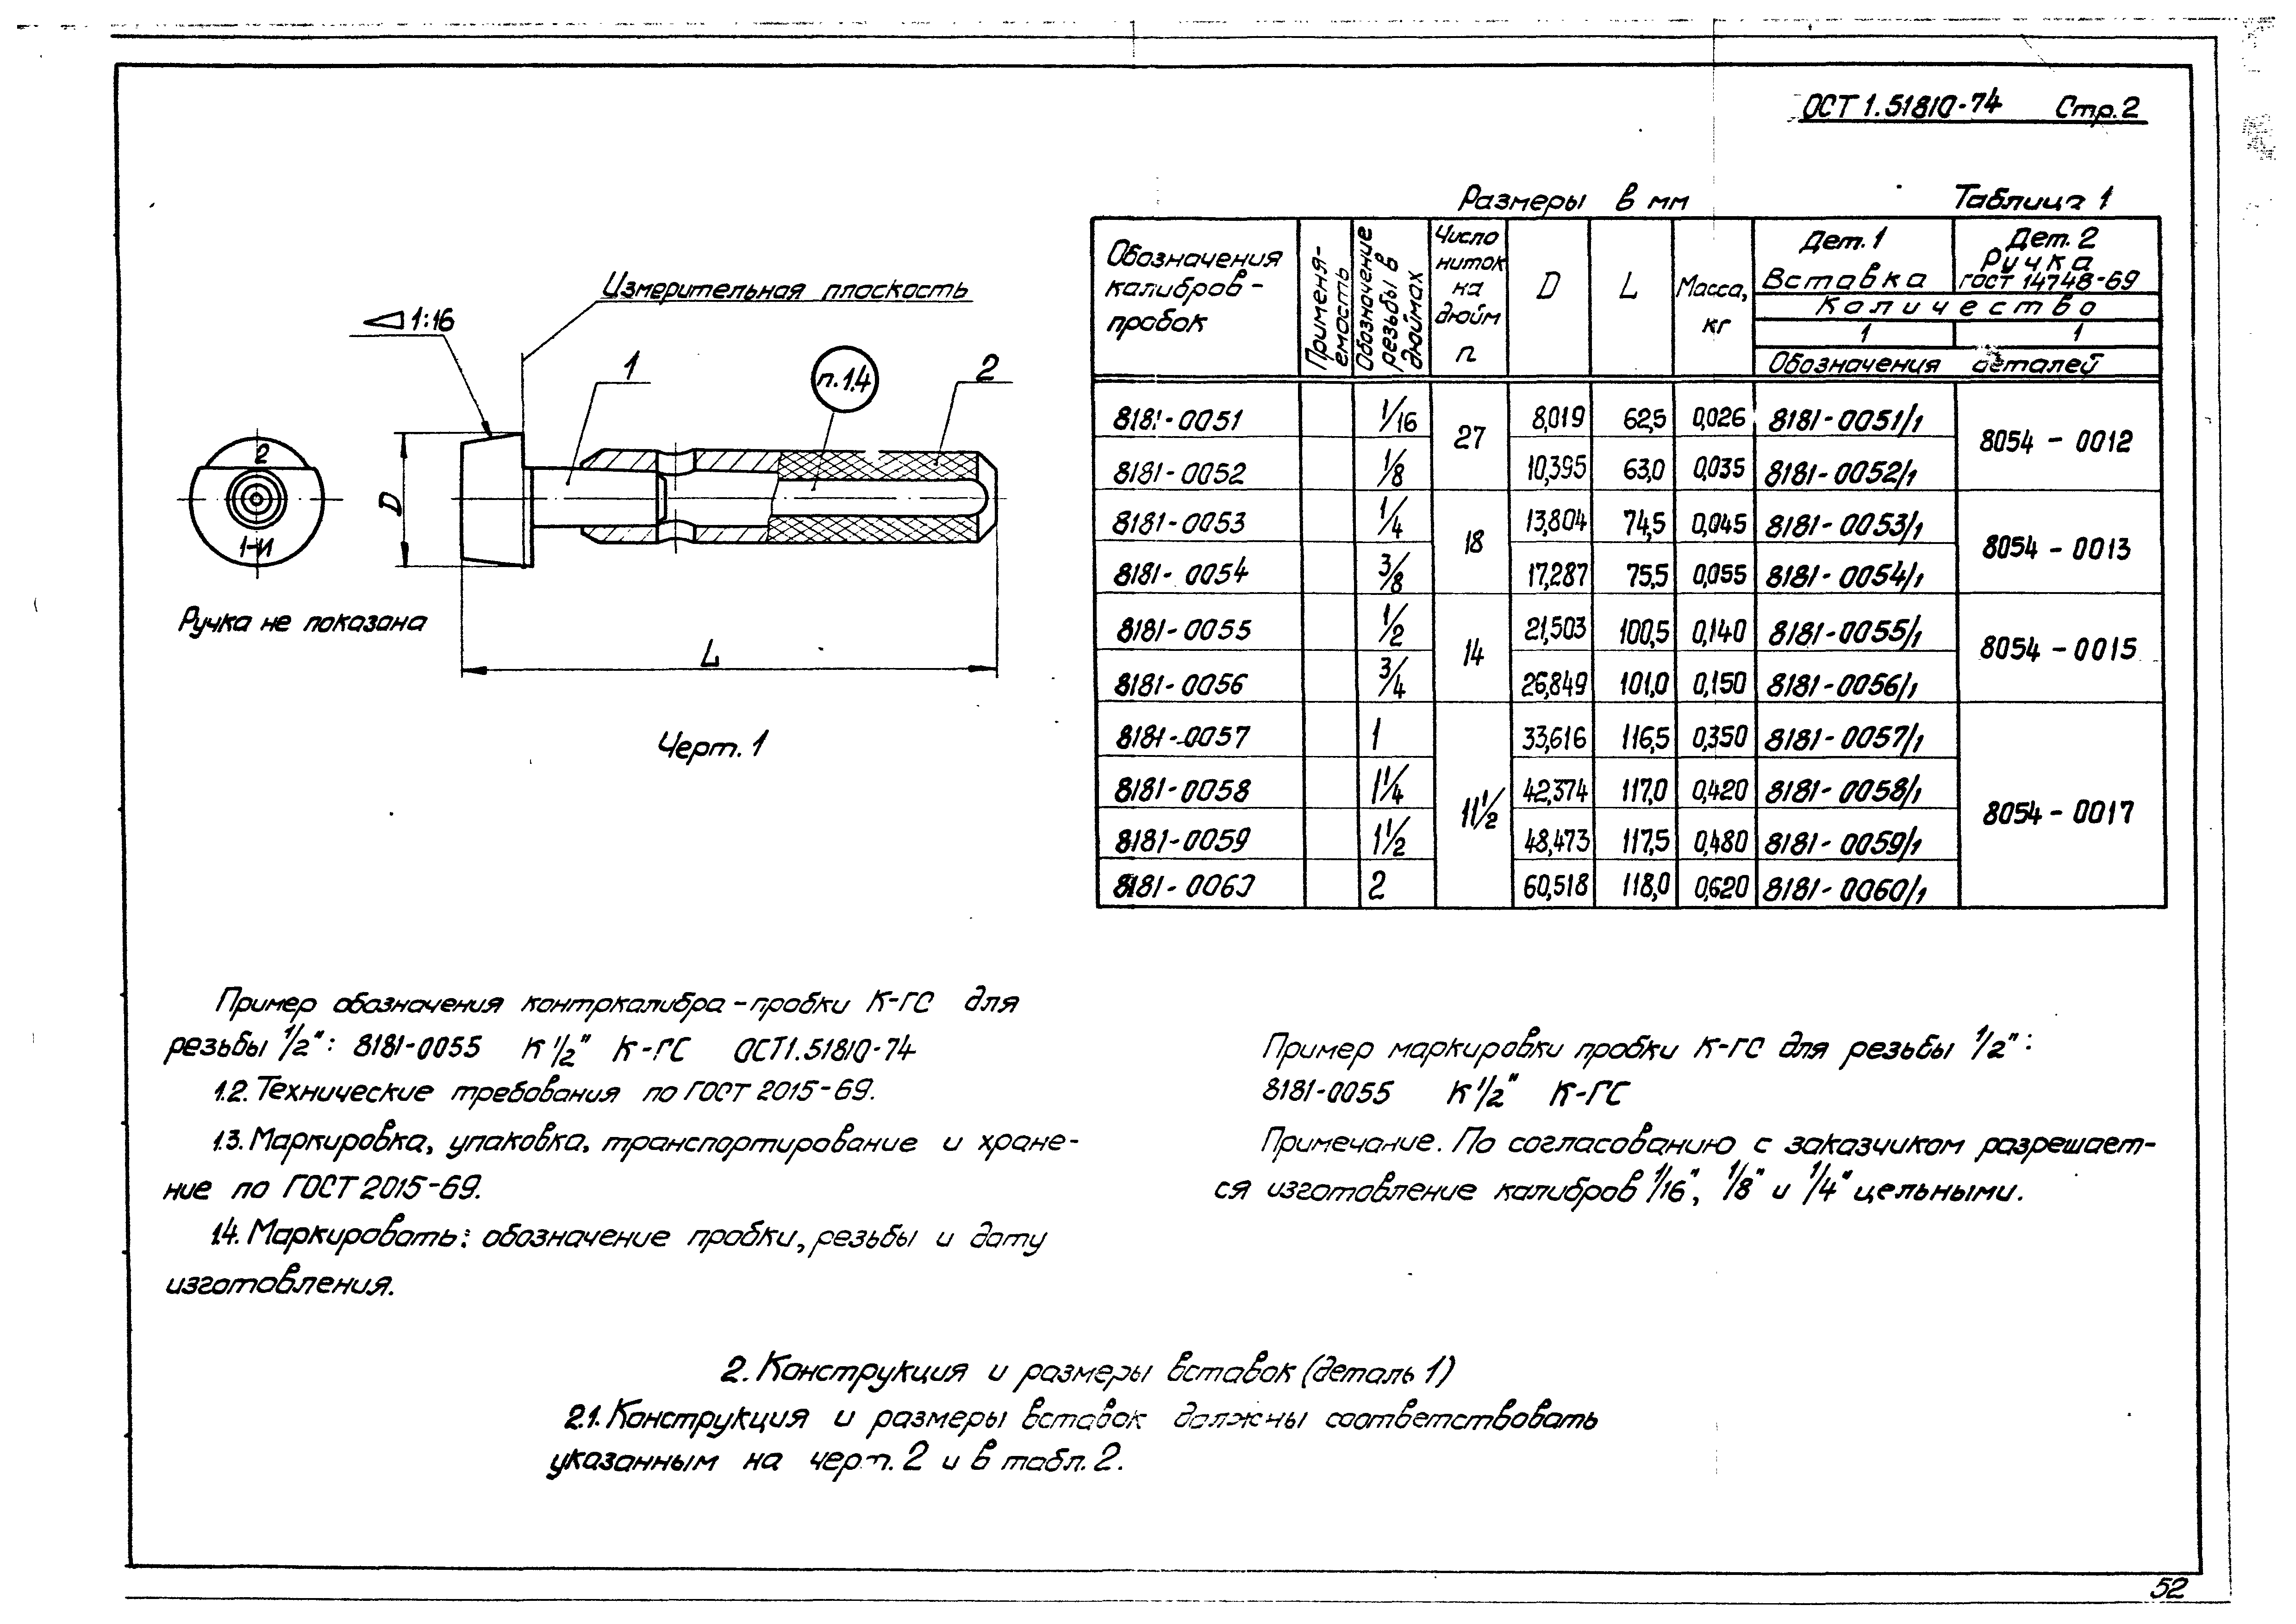 ОСТ 1.51810-74 Стр.2
Измерительная плоскость
1:16
1
п.1.4
2
D
2
1-И
Ручка не показана
L
Черт. 1
Размеры в мм Таблица 1
Обозначения калибров-пробок
Применяемость
Обозначение резьбы в дюймах
Число ниток на дюйм n
D
L
Масса, кг
Дет. 1 Вставка
Дет. 2 Ручка ГОСТ 14748-69
Количество
1 1
Обозначения деталей
8181-0051 1/16 27 8,019 62,5 0,026 8181-0051/1 8054-0012
8181-0052 1/8 10,395 63,0 0,035 8181-0052/1
8181-0053 1/4 18 13,804 74,5 0,045 8181-0053/1 8054-0013
8181-0054 3/8 17,287 75,5 0,055 8181-0054/1
8181-0055 1/2 14 21,503 100,5 0,140 8181-0055/1 8054-0015
8181-0056 3/4 26,849 101,0 0,150 8181-0056/1
8181-0057 1 11 1/2 33,616 116,5 0,350 8181-0057/1 8054-0017
8181-0058 1 1/4 42,374 117,0 0,420 8181-0058/1
8181-0059 1 1/2 48,473 117,5 0,480 8181-0059/1
8181-0060 2 60,518 118,0 0,620 8181-0060/1
Пример обозначения контркалибра-пробки К-ГС для
резьбы 1/2": 8181-0055 К 1/2" К-ГС ОСТ1.51810-74
1.2. Технические требования по ГОСТ 2015-69.
1.3. Маркировка, упаковка, транспортирование и хране-
ние по ГОСТ 2015-69.
1.4. Маркировать: обозначение пробки, резьбы и дату
изготовления.
Пример маркировки пробки К-ГС для резьбы 1/2":
8181-0055 К 1/2" К-ГС
Примечание. По согласованию с заказчиком разрешает-
ся изготовление калибров 1/16", 1/8" и 1/4" цельными.
2. Конструкция и размеры вставок (деталь 1)
2.1. Конструкция и размеры вставок должны соответствовать
указанным на черт. 2 и в табл. 2.
52